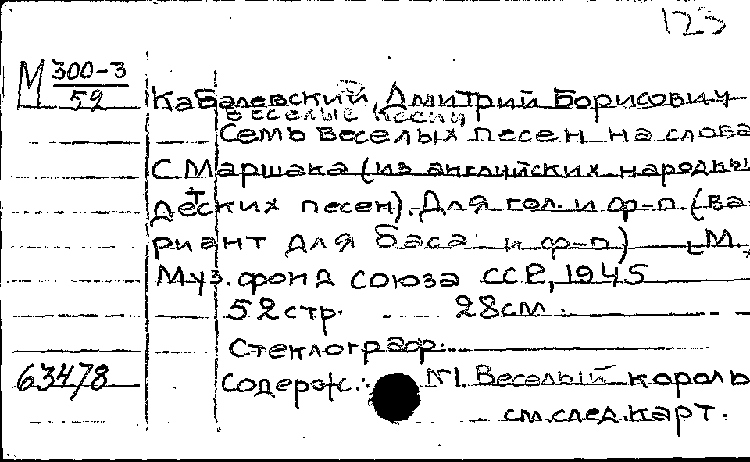 123
М 300-3
59
Кабалевский, Дмитрий Борисович
Веселые песни
Семь веселых песен на слова
С. Маршака (из английских народны
детских песен). Для гол. и ф-п. (ва-
риант для баса и ф-п) [М.,
Муз. фонд союза ССР, 1945
52 стр. 28 см.
Стеклограф.
63478
Содерж.: №1. Веселый король
см. след. карт.